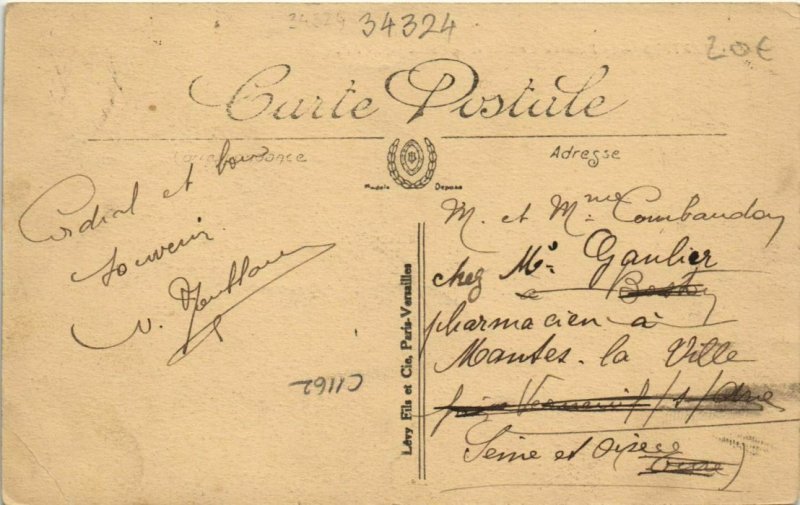 34324
34324
2.0€
Carte Postale
Correspondance
Adresse
Modèle Déposé
Cordial et bon
souvenir
V.
C1162
Lévy Fils et Cie, Paris-Versailles
M. et Mme Combaudon
chez Mr. Gaulier
pharmacien à
Mantes-la Ville
/s/
Seine et Oise